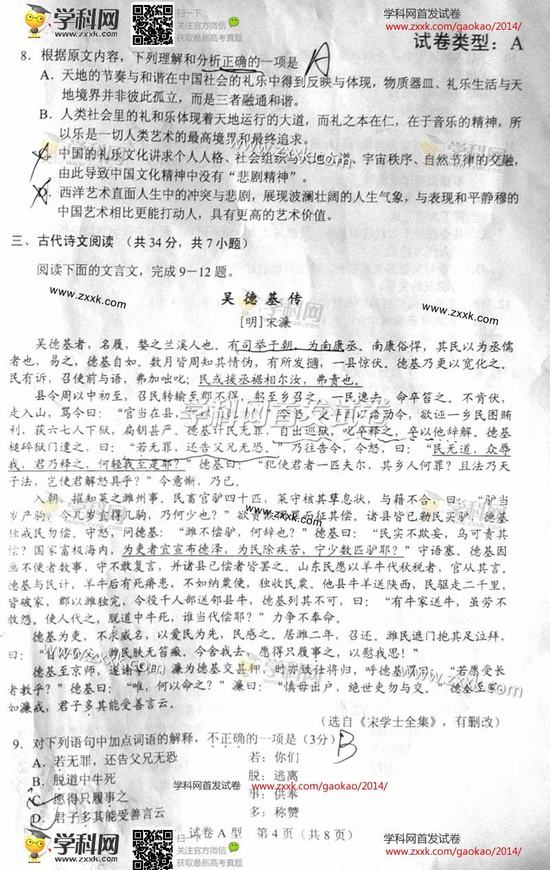 学科网
zxxk.com
扫一扫
关注官方微信
获取最新高考真题
学科网首发试卷
www.zxxk.com/gaokao/2014/
试卷类型：A
8．根据原文内容，下列理解和分析正确的一项是 A
A．天地的节奏与和谐在中国社会的礼乐中得到反映与体现，物质器皿、礼乐生活与天
地境界并非彼此孤立，而是三者融通和谐。
B．人类社会里的礼和乐体现着天地运行的大道，而礼之本在仁，在于音乐的精神，所
以乐是一切人类艺术的最高境界和最终追求。
C．中国的礼乐文化讲求个人人格、社会组织 宇宙秩序、自然节律的交融，
由此导致中国文化精神中没有“悲剧精神”。
D．西洋艺术直面人生中的冲突与悲剧，展现波澜壮阔的人生气象，与表现和平静穆的
中国艺术相比更能打动人，具有更高的艺术价值。
三、古代诗文阅读 （共34分，共7小题）
阅读下面的文言文，完成9－12题。
www.zxxk.com
吴德基传
[明]宋濂
吴德基者，名履，婺之兰溪人也。有司举于朝，为南康丞。南康俗悍，其民以为丞儒
者也，易之。德基自如。数月皆周知其情伪，有所发擿，一县惊伏。德基乃更以宽化之。
民有诉，召使前与语，弗加咄叱；民或援丞裾相尔汝，弗责也。
县令周以中初至，召民转输至郡不得，躬至乡召之。一民逸去，命卒笞之。不肯伏，
走入山，骂令曰：“官当在县，
利。获六七人下狱，扃钥甚严。德基计民无罪，自出巡狱，叱卒释之，卒以他辞解。德基
槌碎狱门遣之。曰：“若无罪，还告父兄无恐。”乃往告令，令怒，曰：“民无道，众辱
我，君乃释之，何轻我至是耶？”德基曰：“犯使君者一匹夫尔，其乡人何罪？且法乃天
子法，岂使君解怒具乎？”令意惭，乃已。
入朝，擢知莱之潍州事。民畜官驴四十匹，莱守核其孳息状，与籍不合，曰：“驴当
岁产驹，今几岁宜得几驹，乃何少也？”欲责
独戒民勿偿。守怒，问德基：“潍不偿驴，何辞也？”德基曰：“民实不欺妄，乌可责其
偿？国家富极海内，为吏者宜宣布德泽，为民除疾苦，宁少数匹驴耶？”守语塞。德基因
画不便者数事，守不敢复言，并诸县已偿者皆罢之。山东民愿以羊牛代秋税者，官从其言。
德基与民计，羊牛后有死瘠患，不如纳粟便，独收民粟。他县牛羊送陕西，民驱走二千里，
皆破家，郡以潍独完，令役千人部送邻县牛，德基列其不可，曰：“有牛家送牛，虽劳不
敢怨。使人代之，脱道中牛死，谁当代偿耶？”力争不奉命。
德基为吏，不求威名，以爱民为先，民感之。居潍二年，召还。潍民遮门抱其足泣拜，
曰：“自 潍民肤无笞瘢。今舍我去，愿得只履事之，以慰我思！”
德基至京师， 濂为德基交甚狎， 呼德基谓曰：“若愿受长
者教乎？”德基曰：“唯，何以命之？”濂曰：“慎毋出户，绝世吏勿与交。”德基至家，
如濂戒，君子多其能受善言云。
（选自《宋学士全集》，有删改）
9．对下列语句中加点词语的解释，不正确的一项是（3分） B
A．若无罪，还告父兄无恐 若：你们
B．脱道中牛死 脱：逃离
C．愿得只履事之 事：供奉
D．君子多其能受善言云 多：称赞
试卷 A 型 第 4 页（共 8 页）
学科网首发试卷
www.zxxk.com/gaokao/2014/